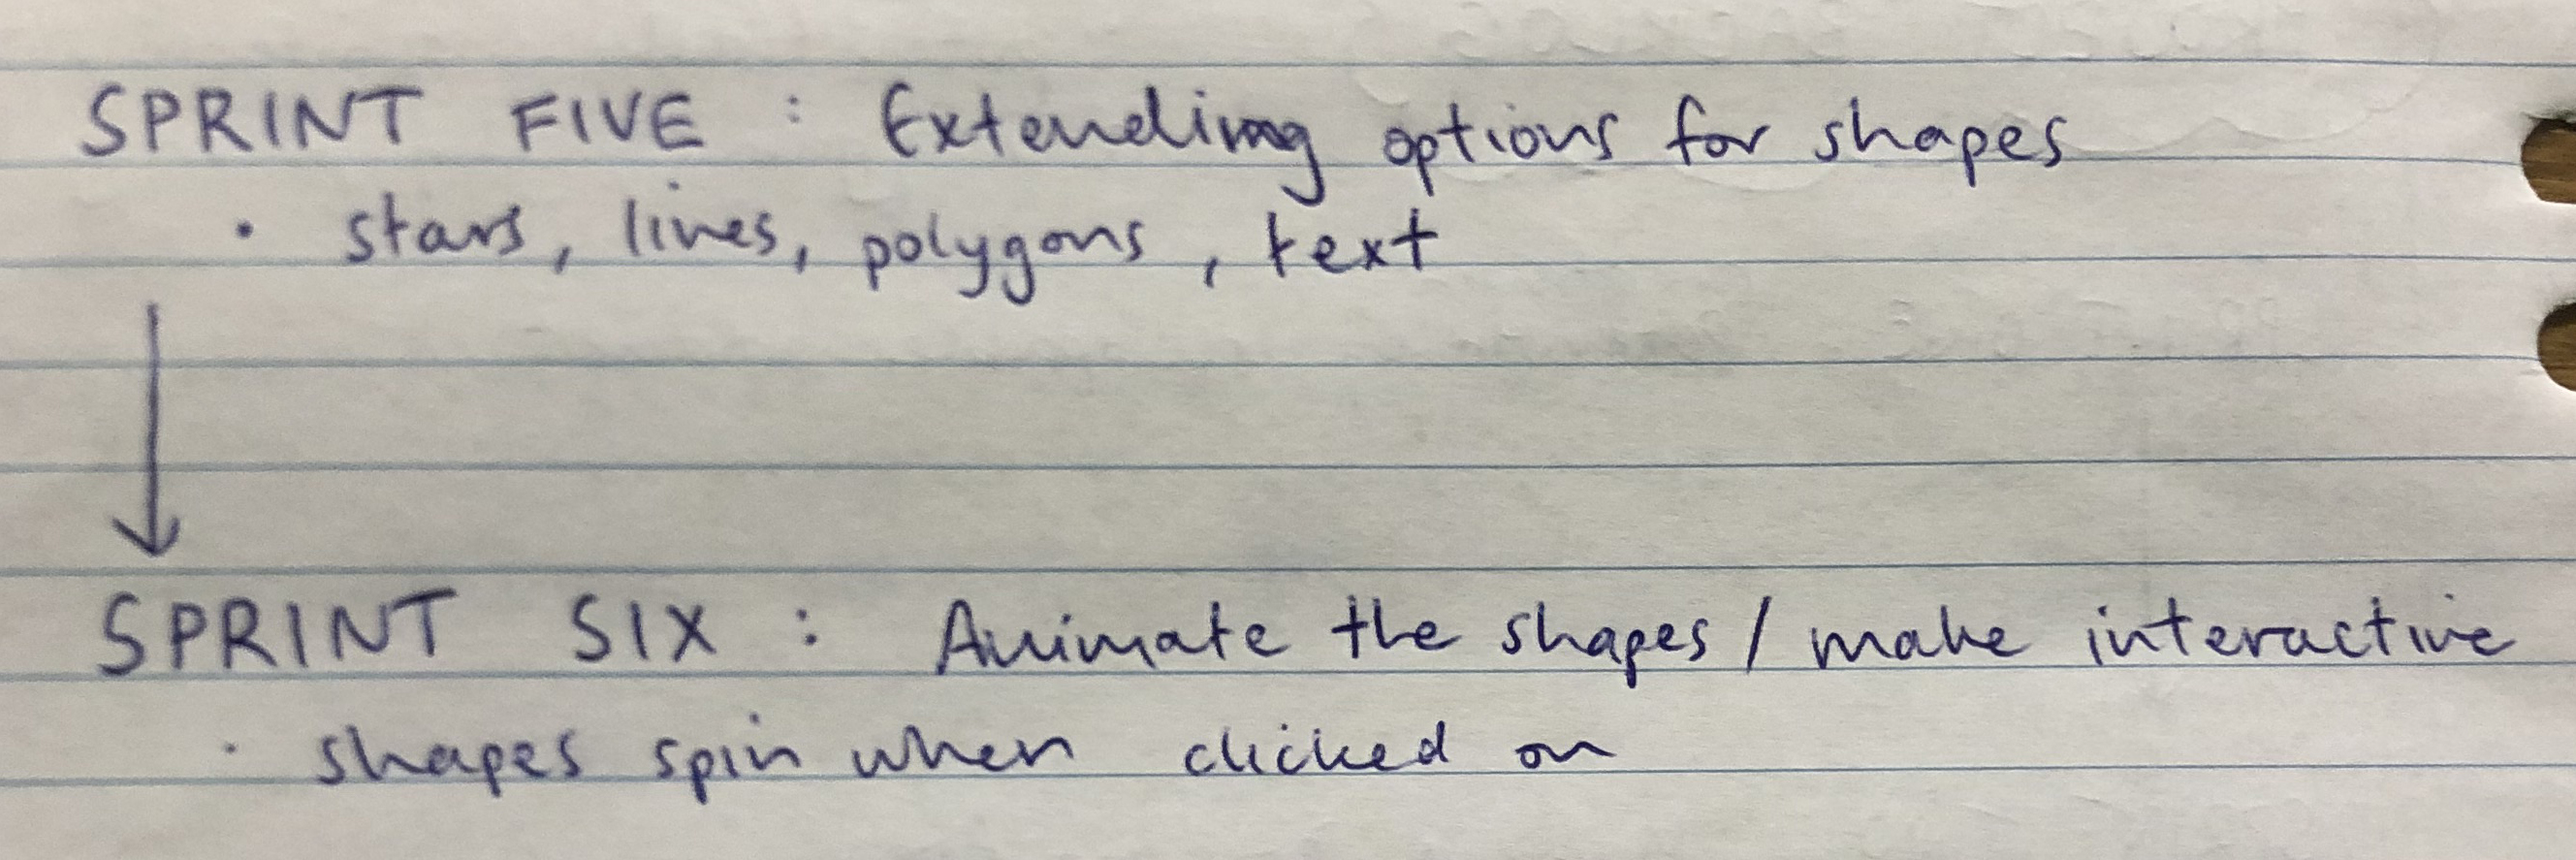 SPRINT FIVE : Extending options for shapes
• stars, lines, polygons, text
SPRINT SIX : Animate the shapes / make interactive
• shapes spin when clicked on